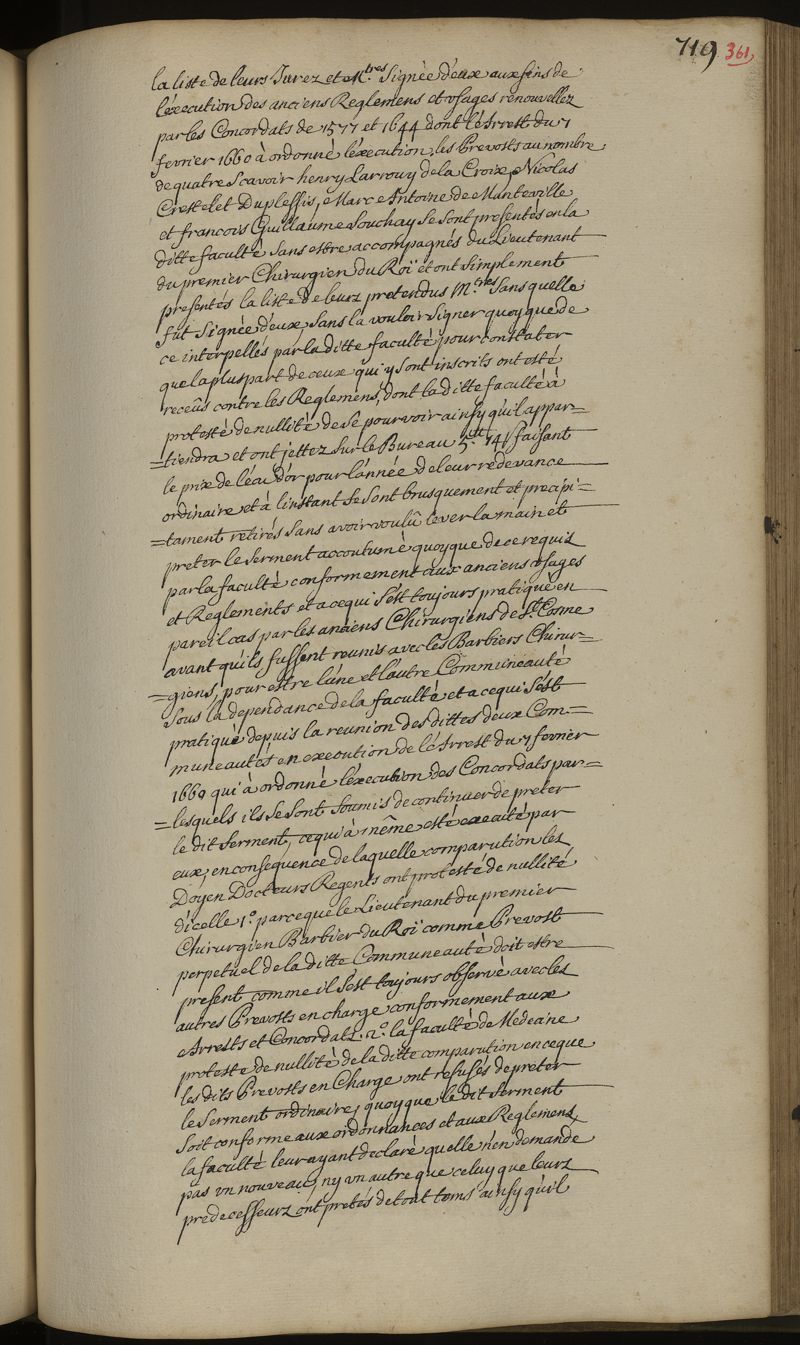 719 361
la liste de leurs Jurez et M.tres signée d'eux aux fins de
l'éxecution des anciens Reglemens et vsages renouvellez
par les Concordats de 1577 et 1644 dont l'Arrest du 7
fevrier 1660 à ordonné léxecution, les Prevosts au nombre
de quatre Scavoir henry Larrouy de la Croix, Nicolas
Crestelet Duplessis, Marc Antoine de Manteville
et francois Guillaume Souchay Se sont presentés en la
ditte faculté Sans estre accompagnés du Lieutenant
du premier Chirurgien du Roï et ont simplement
presentés la liste de leurz pretendus M.tres Sans quelle
fut Signée d'eux, Sans la vouloir signer quoyque de
ce interpellés par la ditte faculté pour constater
que la pluspart de ceux qui y sont inscrits ont esté
receûs contre les Reglemens, dont la ditte faculté à
protesté de nullité de Se pourvoir ainsy qu'il appar=
=tiendra et ont jettez sur le Bureau 5.tt 14 s faisant
le prix de l'écu d'or pour l'année de leur redevance
ordinaire et à l'instant se sont brusquement et precipi=
=tament retirés sans avoir voulû lever la main et
preter le serment accoutumé quoyque de ce requis
par la faculté conformement aux anciens vsages
et Reglements et a ce qui s'est toujours pratiqué en
pareil cas par les anciens Chirurgiens de S.t Cosme
avant qu'ils fussent reunis avec les Barbiers Chirur=
=giens, pour estre l'une et l'autre Communeauté
sous la dependance de la faculté et a ce qui s'est
pratiqué depuis la reunion des dittes deux Com=
muneautés en execution de l'Arrest du 7 fevrier
1660 qui à ordonné l'éxecution des Concordats par=
=lesquels ils se sont soumis de continuer de preter
le dit serment, ce qui à même esté executé par
eux, en consequence de laquelle comparution les
Doyen Docteurs Regents ont protesté de nullité
d'icelle 1.o parceque le Lieutenant du premier
Chirurgien Barbier du Roï comme Prevost
perpetuel de la ditte Communeauté doit estre
present comme il s'est toujours observé avec les
autres Prevosts en charge conformement aux
Arrests et Concordats. 2.o la faculté de Medecine
proteste de nullité de la ditte comparution en ce que
les dits Prevosts en Charge ont refusés de preter
le Serment ordinaire, quoyque le dit serment
Soit conforme aux ordonnances et aux Reglemens,
la faculté leur ayant declaré quelle n'en demande
pas vn nouveau, ny vn autre que celuy que leurs
predecesseurz ont pretés de tout tems ainsy qu'il